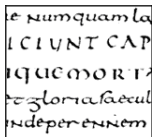 e numquam la
ICIUNT CAP
IQUEMORTA
etgloriafaecul
indeperennem